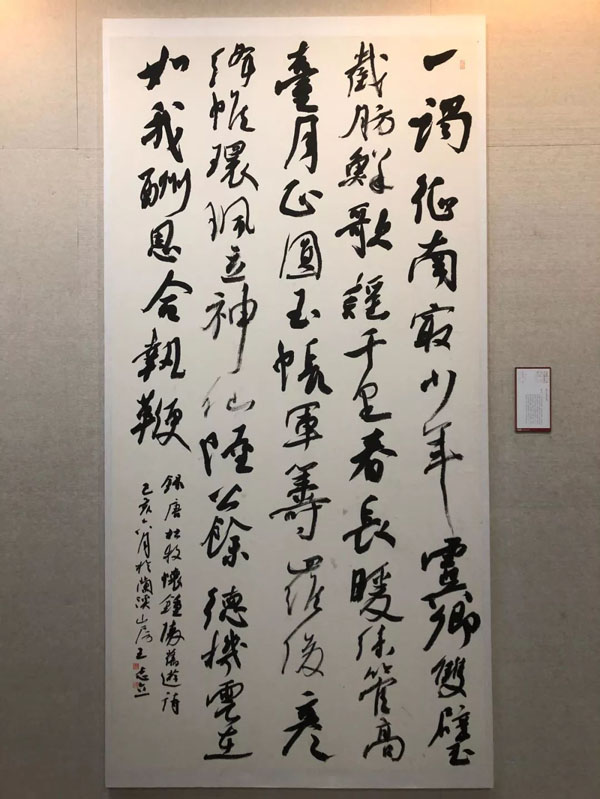 一謁征南冣少年虞卿雙璧
截肪鮮歌謡千里春長暖絲管高
臺月正圓玉帳軍籌羅俊彦
絳帷環珮立神仙陸公餘德機雲在
如我酬恩合執鞭
録唐杜牧懷鍾陵舊遊詩
己亥六月於蘭溪山房王志立